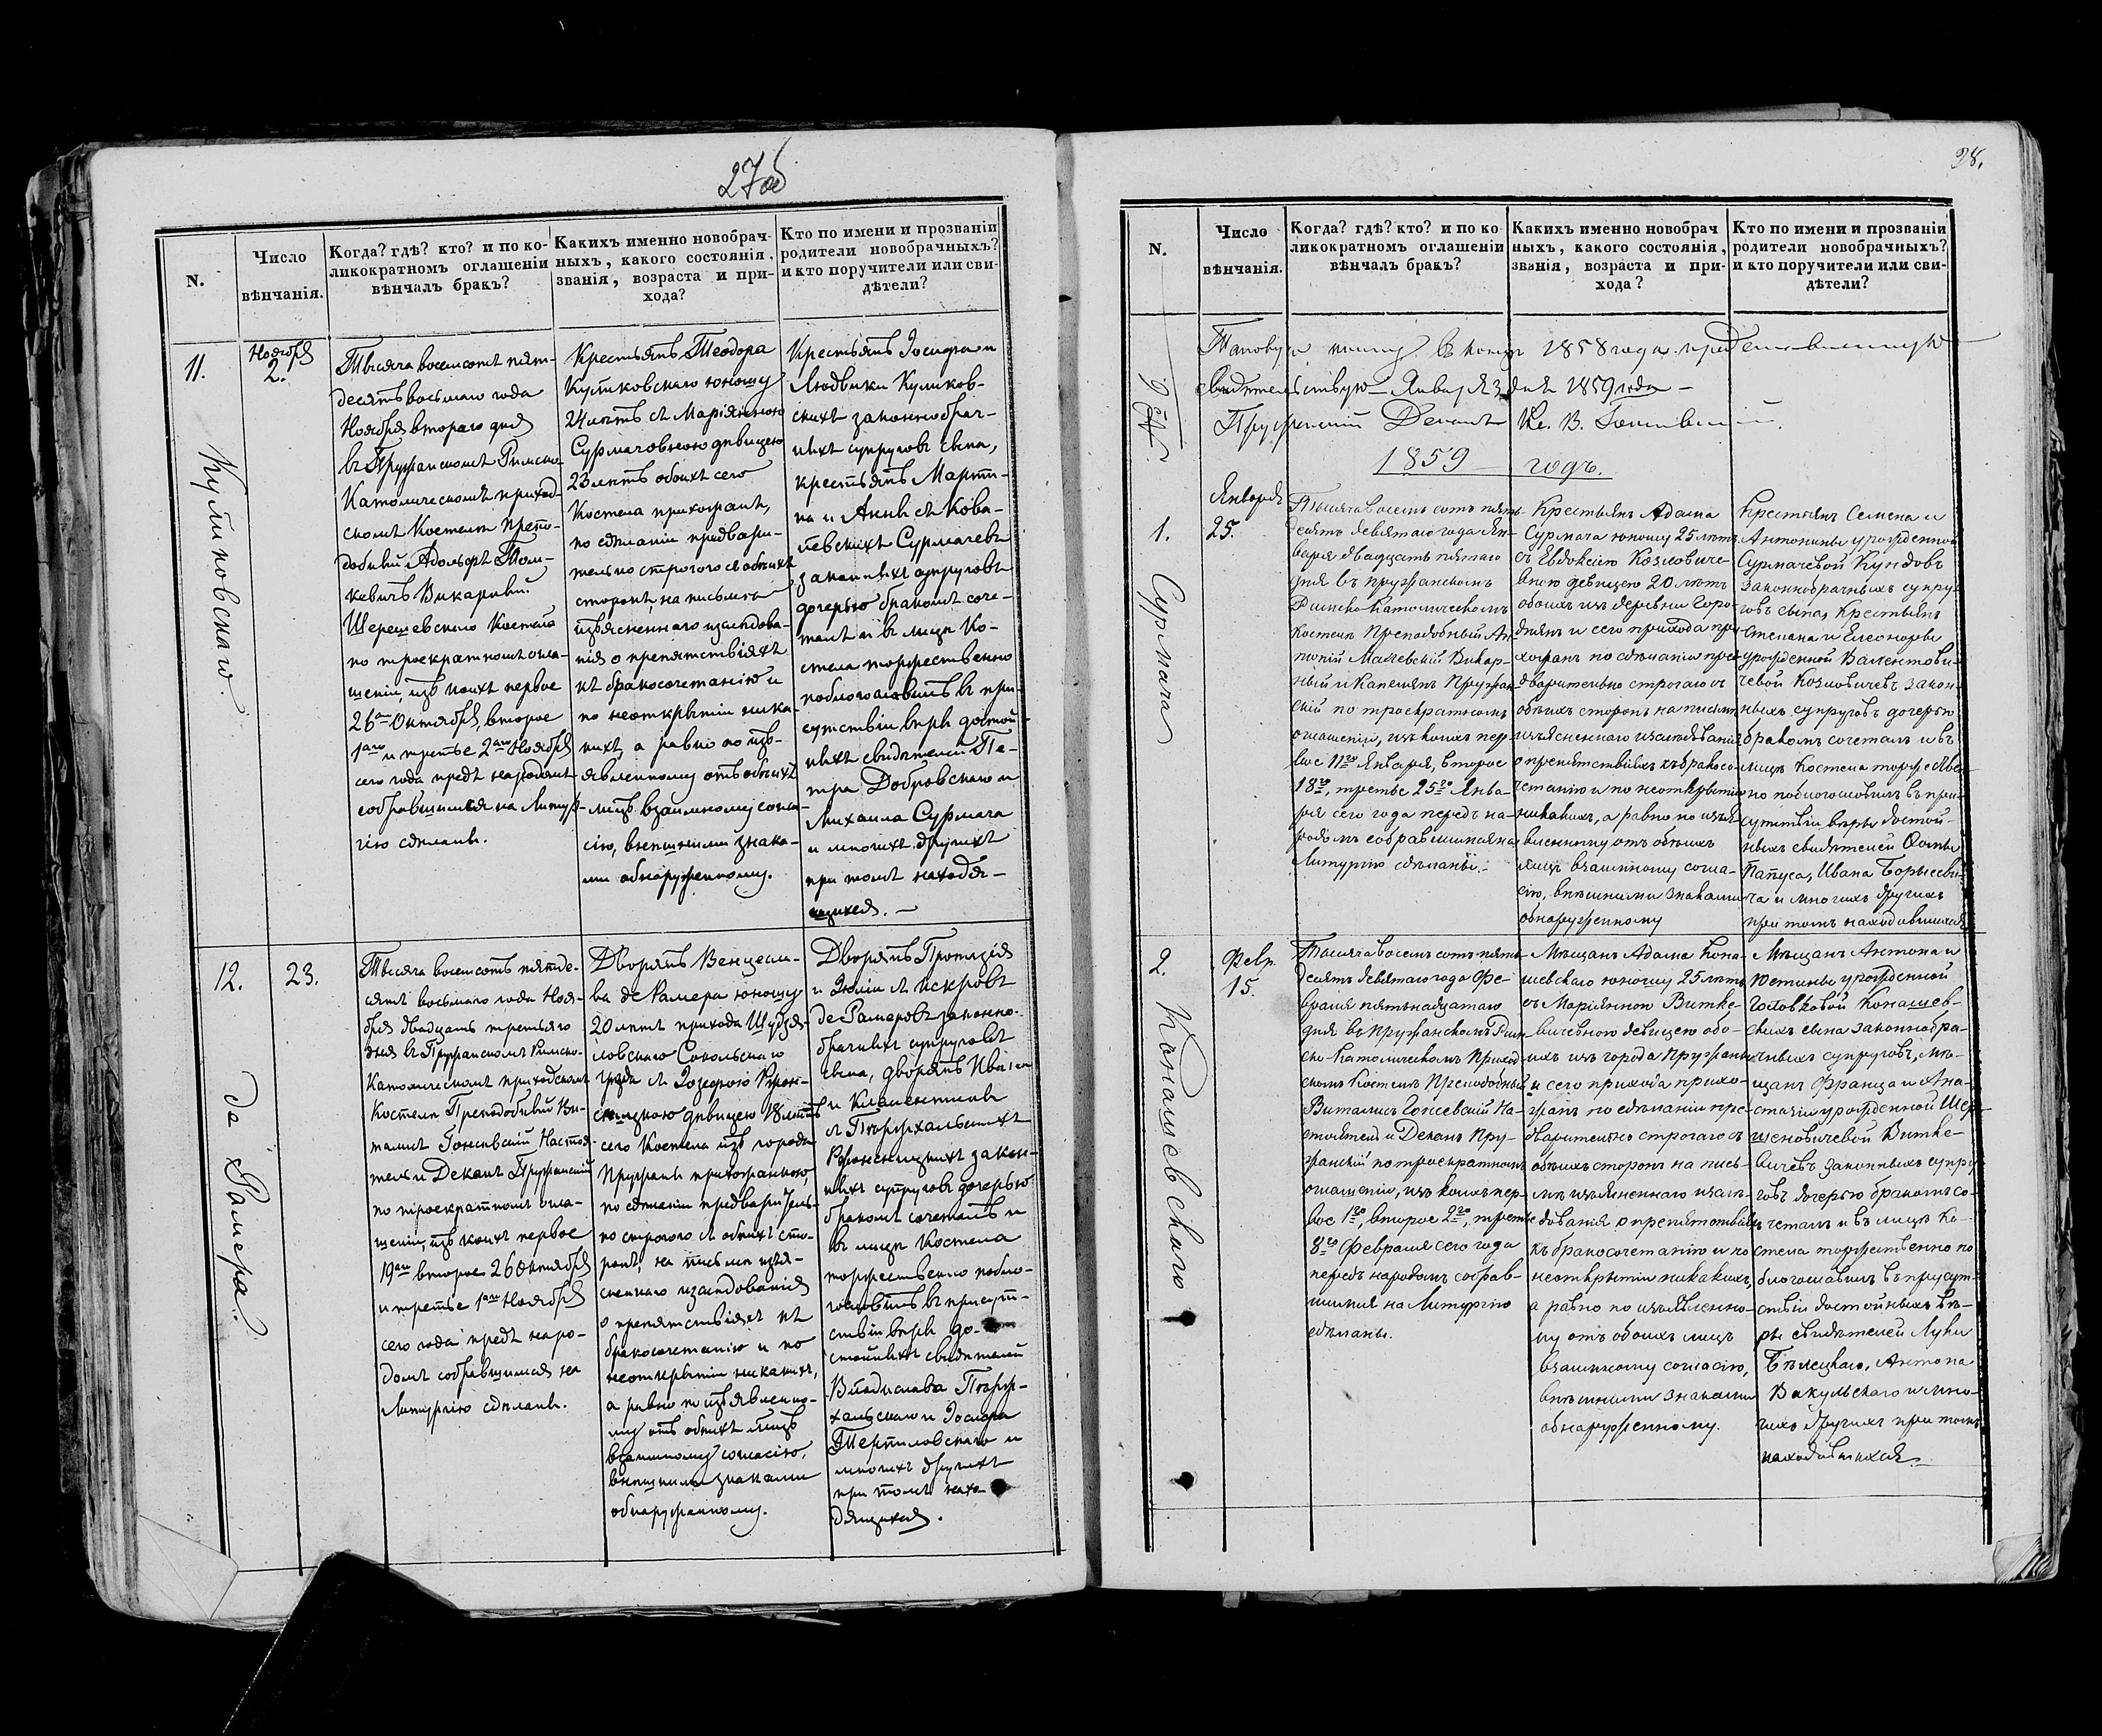 27об
N.
Число
вѣнчанія.
Когда? гдѣ? кто? и по ко-
ликократномъ оглашеніи
вѣнчалъ бракъ?
Какихъ именно новобрач-
ныхъ, какого состоянія,
званія, возраста и при-
хода?
Кто по имени и прозваніи
родители новобрачныхъ?
и кто поручители или сви-
дѣтели?
11.
Куликовскаго.
Ноября
2.
Тысяча восемсотъ пять-
десятъ восьмаго года
Ноября втораго дня
въ Пружанскомъ Римско-
Католическомъ приход-
скомъ Костелѣ Препо-
добный Адольфъ Том-
кевичъ Викарный
Шерешевскаго Костела
по троекратномъ огла-
шеніи, изъ коихъ первое
26го Октября, второе
1аго и третье 2аго Ноября
сего года предъ народомъ
собравшимся на Литур-
гію сдѣланы.
Крестьянъ Теодора
Куликовскаго юношу
24 лѣтъ съ Маріянною
Сурмачовною дѣвицею
23 лѣтъ обоихъ сего
Костела прихожанъ,
по сдѣланіи предвари-
тельно строгого съ обоихъ
сторонъ, на письмѣ
изъясненнаго изслѣдова-
нія о препятствіяхъ
къ бракосочетанію и
по неоткрытіи ника-
кихъ, а равно по изъ-
явленному отъ обоихъ
лицъ взаимному согла-
сію, внѣшними знака-
ми обнаруженному.
Крестьянъ Іосифа и
Людвики Куликов-
скихъ законнобрач-
ныхъ супруговъ сына,
крестьянъ Марти-
на и Анны съ Кова-
левскихъ Сурмачевъ
законныхъ супруговъ
дочерью бракомъ соче-
талъ и въ лицѣ Ко-
стела торжественно
поблогословилъ въ при-
сутствіи вѣры достой-
ныхъ свидѣтелей Пе-
тра Добровскаго и
Михаила Сурмача
и многихъ другихъ
при томъ находя-
щихся. —
12.
де Рамера.
23.
Тысяча восемсотъ пятиде-
сятъ восьмаго года Ноя-
бря двадцать третьяго
дня въ Пружанскомъ Римско-
Католическомъ приходскомъ
Костелѣ Преподобный Ви-
талисъ Гоневскій Настоя-
тель и Деканъ Пружанскій
по троекратномъ огла-
шеніи, изъ коихъ первое
19аго второе 26 Октября
и третье 1аго Ноября
сего года предъ наро-
домъ собравшимся на
Литургію сдѣланы.
Дворянъ Венцесла-
ва де Рамера юношу
20 лѣтъ прихода Шудзя-
ловскаго Сокольскаго
уѣзда съ Іозефою
дѣвицею 18 лѣтъ
сего Костела изъ города
Пружанъ прихожанкою,
по сдѣланіи предваритель-
но строгого съ обоихъ сто-
ронъ, на письмѣ изъя-
сненнаго изслѣдованія
о препятствіяхъ къ
бракосочетанію и по
неоткрытіи никакихъ,
а равно по изъявленно-
му отъ обоихъ лицъ
взаимному согласію,
внѣшними знаками
обнаруженному.
Дворянъ Протазія
и Юліи съ Искровъ
де Рамеровъ законно-
брачныхъ супруговъ
сына, дворянъ Ивана
и Клементины
съ
закон-
ныхъ супруговъ дочерью
бракомъ сочеталъ и
въ лицѣ Костела
торжественно побло-
гословилъ въ присут-
ствіи вѣры до-
стойныхъ свидѣтелей
Владислава
и Іосифа
и
многихъ другихъ
при томъ нахо-
дящихся.
28.
N.
Число
вѣнчанія.
Когда? гдѣ? кто? и по ко
ликократномъ оглашеніи
вѣнчалъ бракъ?
Какихъ именно новобрач
ныхъ, какого состоянія,
званія, возраста и при-
хода?
Кто по имени и прозваніи
родители новобрачныхъ?
и кто поручители или сви-
дѣтели?
1858 года
свидѣтельствую Января 3 дня 1859 года —
Пружанскій Деканъ Кс. В.
1859 годъ.
1.
Сурмача
Января
25.
Тысяча восемь сотъ пять-
десятъ девятаго года Ян-
варя двадцать пятаго
дня въ Пружанскомъ
Римско-Католическомъ
Костелѣ Преподобный Ан-
тоній Малевскій Викар-
ный и Капелянъ Пружан-
скій по троекратномъ
оглашеніи, изъ коихъ пер-
вое 11го Января, второе
18го, третье 25го Янва-
ря сего года передъ на-
родомъ собравшимся на
Литургію сдѣланы.-
Крестьянъ Адама
Сурмача юношу 25 лѣтъ
съ Евдокіею Козловиче-
вною девицею 20 лѣтъ
обоихъ изъ деревни Горо-
днянъ и сего прихода при-
хожанъ по сдѣланіи пре-
дварительно строгаго съ
обѣихъ сторонъ на письмѣ
изъясненнаго изслѣдованія
о препятствіяхъ къ бракосо-
четанію и по неоткрытіи
никакихъ, а равно по изъя-
вленному отъ обѣихъ
лицъ взаимному согла-
сію, внѣшними знаками
обнаруженному
Крестьянъ Семена и
Антонины урожденной
Сурмачевой Кундовъ
законнобрачныхъ супру-
говъ сына, Крестьянъ
Степана и Елеоноры
урожденной Валентови-
чевой Козловичевъ закон-
ныхъ супруговъ дочерью
бракомъ сочеталъ и въ
лицѣ Костела торжествен-
но поблогословилъ въ при-
сутствіи вѣры достой-
ныхъ свидѣтелей Фомы
Папуса, Ивана Борысеви-
ча и многихъ другихъ
при томъ находившихся
2.
Конашевскаго
Февр.
15.
Тысяча восемь сотъ пять-
десятъ девятаго года Фе-
враля пятьнадцатаго
дня въ Пружанскомъ Рим-
ско-Католическомъ Приход-
скомъ Костелѣ Преподобный
Виталисъ Гоневскій На-
стоятель и Деканъ Пру-
жанскій по троекратномъ
оглашеніи, изъ коихъ пер-
вое 1го, второе 2го, третье
8го Февраля сего года
передъ народомъ собрав-
шимся на Литургію
сдѣланы.
Мѣщанъ Адама Кона-
шевскаго юношу 25 лѣтъ
съ Маріянною Витке-
вичевною девицею обо-
ихъ изъ города Пружанъ
и сего прихода прихо-
жанъ по сдѣланіи пре-
дварительно строгаго съ
обѣихъ сторонъ на пись-
мѣ изъясненнаго изслѣ-
дованія о препятствіяхъ
къ бракосочетанію и по
неоткрытіи никакихъ,
а равно по изъявленно-
му отъ обоихъ лицъ
взаимному согласію,
внѣшними знаками
обнаруженному.
Мѣщанъ Антона и
Юстины урожденной
Головковой Конашев-
скихъ сына законнобра-
чныхъ супруговъ, мѣ-
щанъ Франца и Ана-
стасіи урожденной Шер-
шеновичевой Витке-
вичевъ законныхъ супру-
говъ дочерью бракомъ со-
четалъ и въ лицѣ Ко-
стела торжественно по
блогословилъ въ присут-
ствіи достойныхъ вѣ-
ры свидѣтелей Луки
Бѣлецкаго, Антона
Викульскаго и мно-
гихъ другихъ при томъ
находившихся.